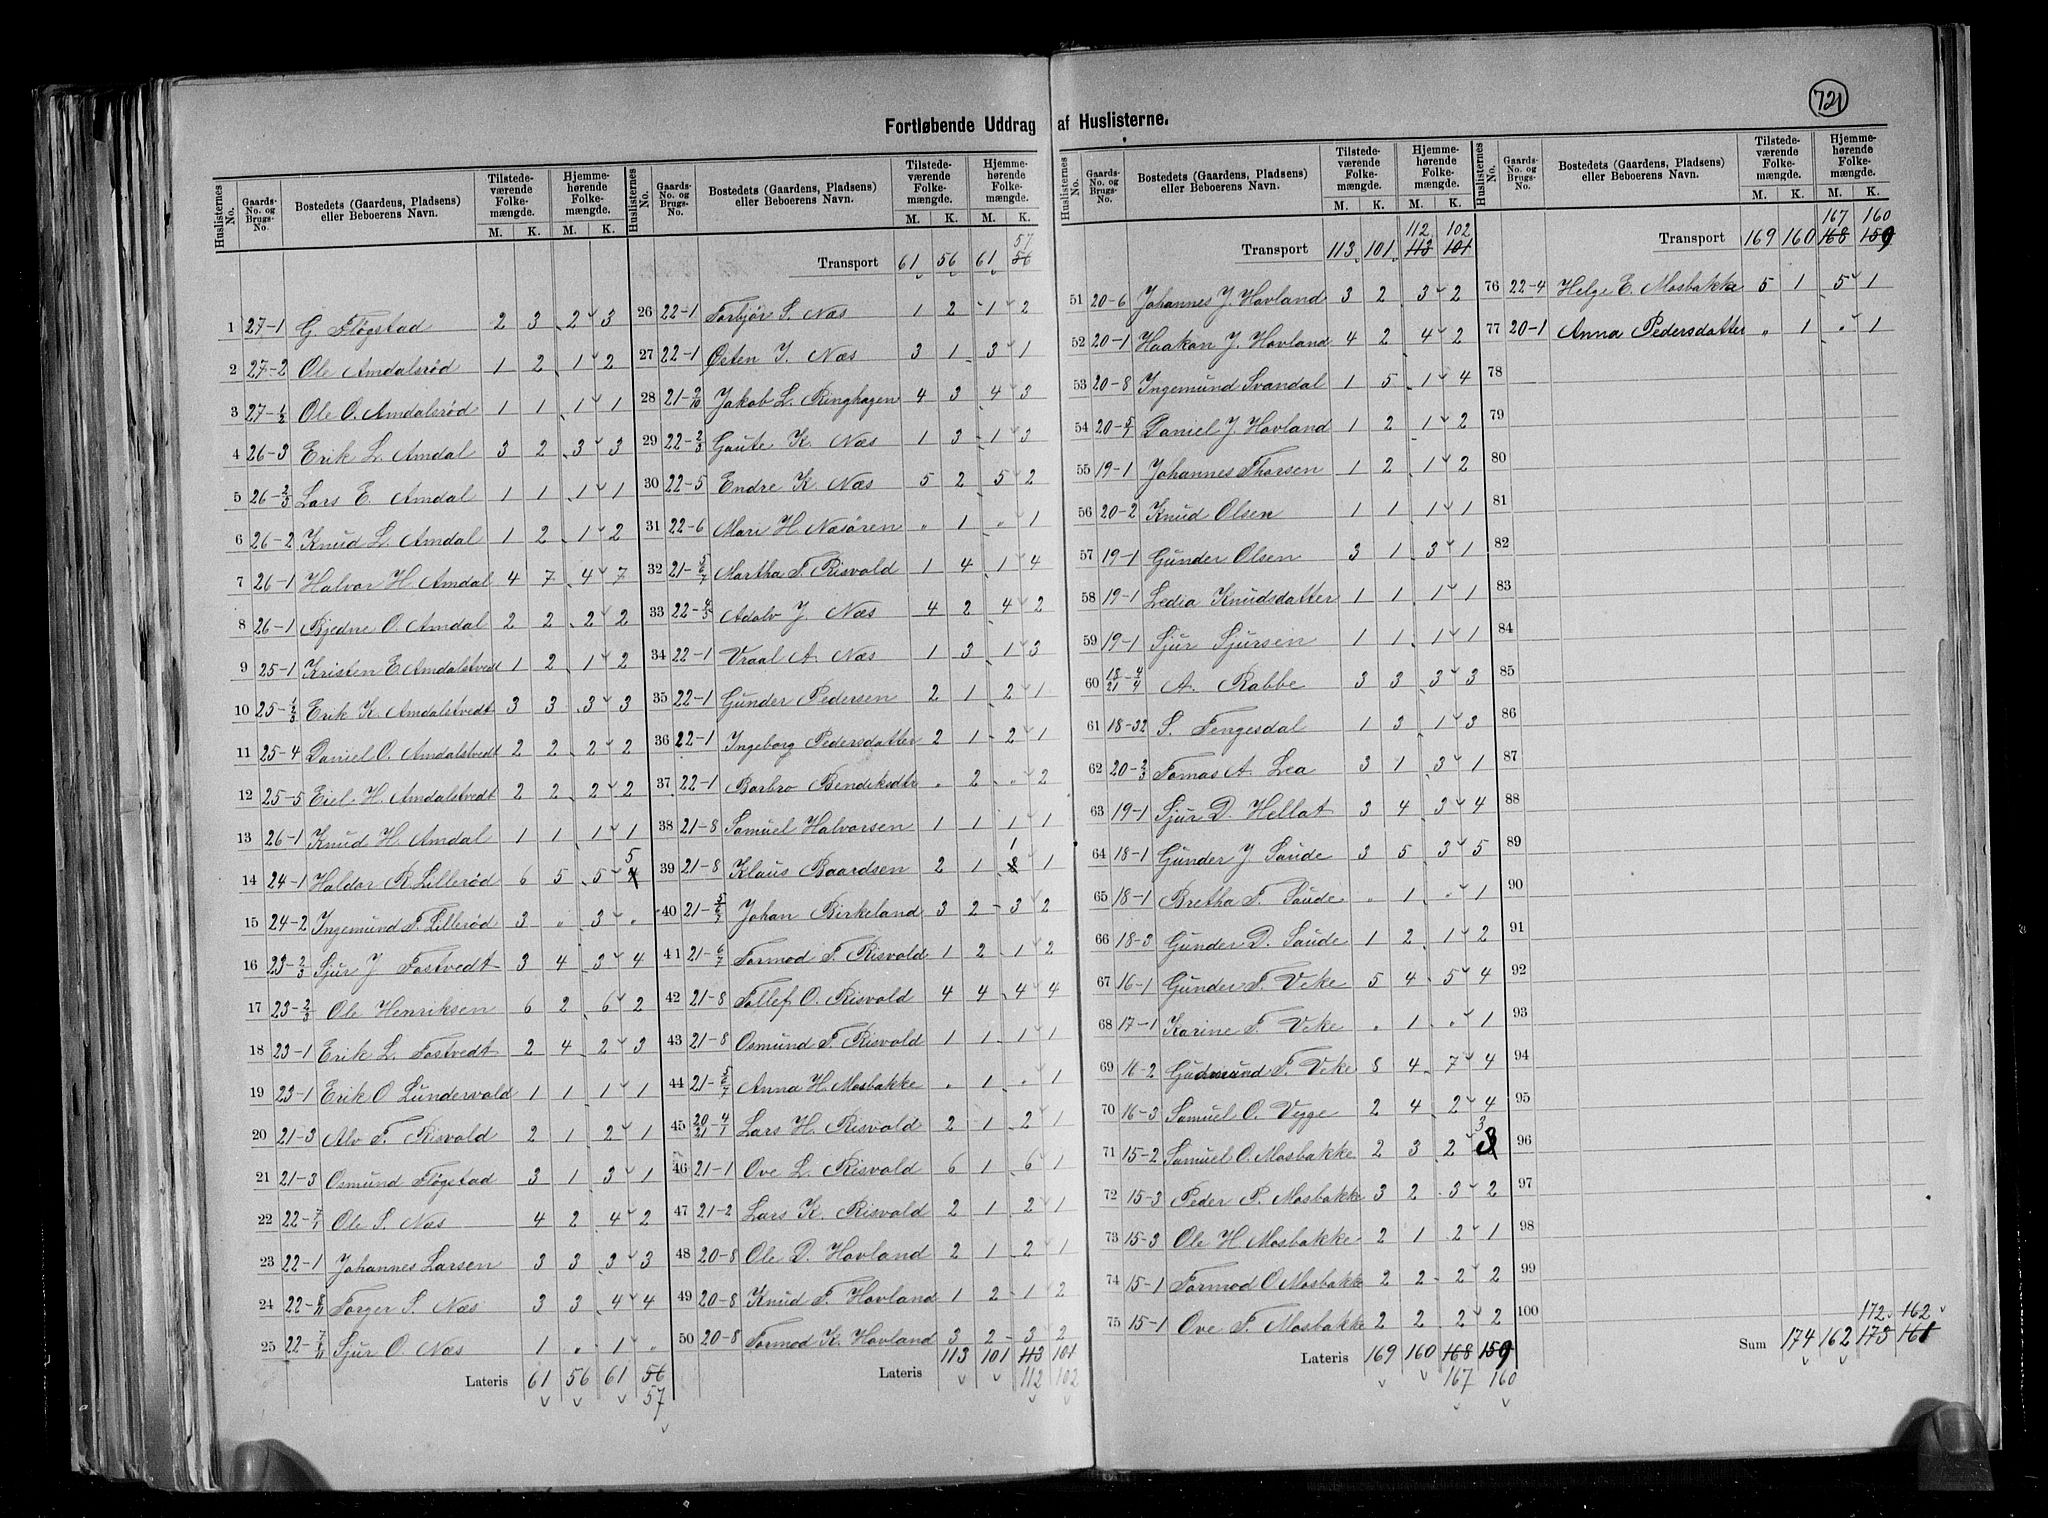 721
Fortløbende Uddrag af Huslisterne.
Huslisternes No. | Gaards-No. og Brugs-No. | Bostedets (Gaardens, Pladsens) eller Beboerens Navn. | Tilstedeværende Folkemængde. M. K. | Hjemmehørende Folkemængde. M. K.
1 27-1 G. Fløgstad 2 3 2 3
2 27-2 Ole Amdalsrød 1 2 1 2
3 27-1/2 Ole O. Amdalsrød 1 1 1 1
4 26-3 Erik L. Amdal 3 2 3 3
5 26-2/3 Lars E. Amdal 1 1 1 1
6 26-2 Knud L. Amdal 1 2 1 2
7 26-1 Halvor H. Amdal 4 7 4 7
8 26-1 Bjedne O. Amdal 2 2 2 2
9 25-1 Kristen E. Amdalstvedt 1 2 1 2
10 25-1/3 Erik K. Amdalstvedt 3 3 3 3
11 25-4 Daniel O. Amdalstvedt 2 2 2 2
12 25-5 Eiel H. Amdalstvedt 2 2 2 2
13 26-1 Knud H. Amdal 1 1 1 1
14 24-1 Haldor R. Lillerød 6 5 5 4 5
15 24-2 Ingemund T. Lillerød 3 " 3 "
16 23-2/3 Sjur J. Tostvedt 3 4 3 4
17 23-2/3 Ole Henriksen 6 2 6 2
18 23-1 Erik L. Tostvedt 2 4 2 3
19 23-1 Erik O. Lundervold 1 1 1 1
20 21-3 Alv T. Risvold 2 1 2 1
21 21-3 Osmund Fløgstad 3 1 3 1
22 22-7/1 Ole S. Næs 4 2 4 2
23 22-1 Johannes Larsen 3 3 3 3
24 22-8/11 Torger S. Næs 3 3 4 4
25 22-7/11 Sjur O. Næs 1 " 1 "
Lateris 61 56 61 56
57
Transport 61 56 61 56 57
26 22-1 Torbjør S. Næs 1 2 1 2
27 22-1 Østen I. Næs 3 1 3 1
28 21-9/10 Jakob L. Ringhagen 4 3 4 3
29 22-2/3 Gaute K. Næs 1 3 1 3
30 22-5 Endre K. Næs 5 2 5 2
31 22-6 Mari H. Næsøren " 1 " 1
32 21-5/6/7 Martha T. Risvold 1 4 1 4
33 22-4/5 Adalv J. Næs 4 2 4 2
34 22-1 Vraal A. Næs 1 3 1 3
35 22-1 Gunder Pedersen 2 1 2 1
36 22-1 Ingeborg Pedersdatter 2 1 2 1
37 22-1 Barbro Bendiksdtr " 2 " 2
38 21-8 Samuel Halvorsen 1 1 1 1
39 21-8 Klaus Baardsen 2 1 1 1
40 21-5/6/7 Johan Birkeland 3 2 3 2
41 21-6/7 Tormod T. Risvold 1 2 1 2
42 21-8 Tollef O. Risvold 4 4 4 4
43 21-8 Osmund T. Risvold 1 1 1 1
44 21-5/6/7 Anna H. Mosbakke " 1 " 1
45 20/21-4/1 Lars H. Risvold 2 1 2 1
46 21-1 Ove L. Risvold 6 1 6 1
47 21-2 Lars K. Risvold 2 1 2 1
48 20-8 Ole D. Hovland 2 1 2 1
49 20-8 Knud T. Hovland 1 2 1 2
50 20-8 Tormod K. Hovland 3 2 3 2
Lateris 113 101 113 101
112 102
Huslisternes No. | Gaards-No. og Brugs-No. | Bostedets (Gaardens, Pladsens) eller Beboerens Navn. | Tilstedeværende Folkemængde. M. K. | Hjemmehørende Folkemængde. M. K.
112 102
Transport 113 101 113 101
51 20-6 Johannes J. Hovland 3 2 3 2
52 20-1 Haakon J. Hovland 4 2 4 2
53 20-8 Ingemund Svandal 1 5 1 4
54 20-5/7 Daniel J. Hovland 1 2 1 2
55 19-1 Johannes Thorsen 1 2 1 2
56 20-2 Knud Olsen 1 1 1 1
57 19-1 Gunder Olsen 3 1 3 1
58 19-1 Ledia Knudsdatter 1 1 1 1
59 19-1 Sjur Sjursen 1 1 1 1
60 18/21-4/4 A. Rabbe 3 3 3 3
61 18-32 S. Tengesdal 1 3 1 3
62 20-2/3 Tomas A. Lea 3 1 3 1
63 19-1 Sjur D. Hellat 3 4 3 4
64 18-1 Gunder J. Saude 3 5 3 5
65 18-1 Bretha T. Saude " 1 " 1
66 18-3 Gunder D. Saude 1 2 1 2
67 16-1 Gunder T. Veke 5 4 5 4
68 17-1 Karine T. Veke " 1 " 1
69 16-2 Gudmund T. Veke 8 4 7 4
70 16-3 Samuel O. Vegge 2 4 2 4
71 15-2 Samuel O. Mosbakke 2 3 2 3
72 15-3 Peder P. Mosbakke 3 2 3 2
73 15-3 Ole H. Mosbakke 2 1 2 1
74 15-1 Tormod O. Mosbakke 2 2 2 2
75 15-1 Ove T. Mosbakke 2 2 2 2
Lateris 169 160 168 159
167 160
167 160
Transport 169 160 168 159
76 22-4 Helge E. Mosbakke 5 1 5 1
77 20-1 Anna Pedersdatter " 1 " 1
78
79
80
81
82
83
84
85
86
87
88
89
90
91
92
93
94
95
96
97
98
99
100
172 162
Sum 174 162 173 161